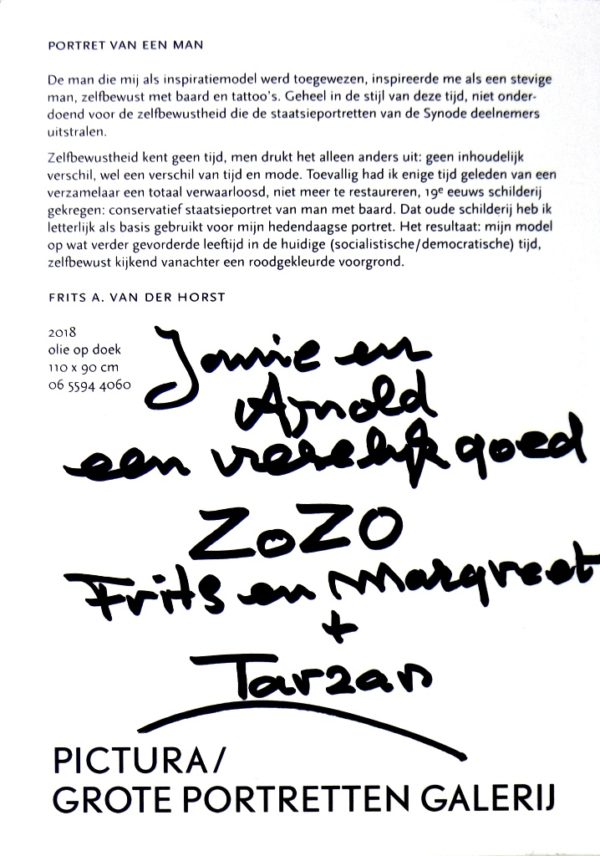 PORTRET VAN EEN MAN
De man die mij als inspiratiemodel werd toegewezen, inspireerde me als een stevige
man, zelfbewust met baard en tattoo's. Geheel in de stijl van deze tijd, niet onder-
doend voor de zelfbewustheid die de staatsieportretten van de Synode deelnemers
uitstralen.
Zelfbewustheid kent geen tijd, men drukt het alleen anders uit: geen inhoudelijk
verschil, wel een verschil van tijd en mode. Toevallig had ik enige tijd geleden van een
verzamelaar een totaal verwaarloosd, niet meer te restaureren, 19e eeuws schilderij
gekregen: conservatief staatsieportret van man met baard. Dat oude schilderij heb ik
letterlijk als basis gebruikt voor mijn hedendaagse portret. Het resultaat: mijn model
op wat verder gevorderde leeftijd in de huidige (socialistische/democratische) tijd,
zelfbewust kijkend vanachter een roodgekleurde voorgrond.
FRITS A. VAN DER HORST
2018
olie op doek
110 x 90 cm
06 5594 4060
Jamie en
Arnold
een vreselijk goed
ZoZO
Frits en Margreet
+
Tarzan
PICTURA/
GROTE PORTRETTEN GALERIJ